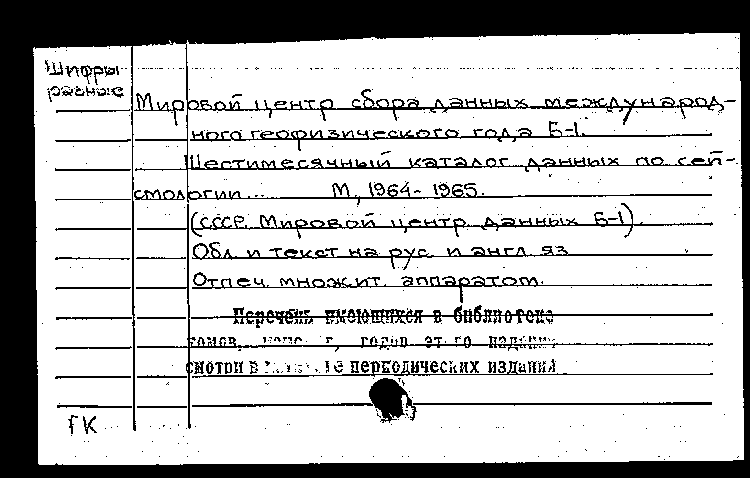 Шифры
разные
Мировой центр сбора данных международ-
ного геофизического года Б-1.
Шестимесячный каталог данных по сей-
смологии... М., 1964-1965.
(СССР. Мировой центр данных Б-1)
Обл. и текст на рус. и англ. яз.
Отпеч. множит. аппаратом.
Перечень имеющихся в библиотеке
томов, годов эт го издания
смотри в периодических изданий
ГК